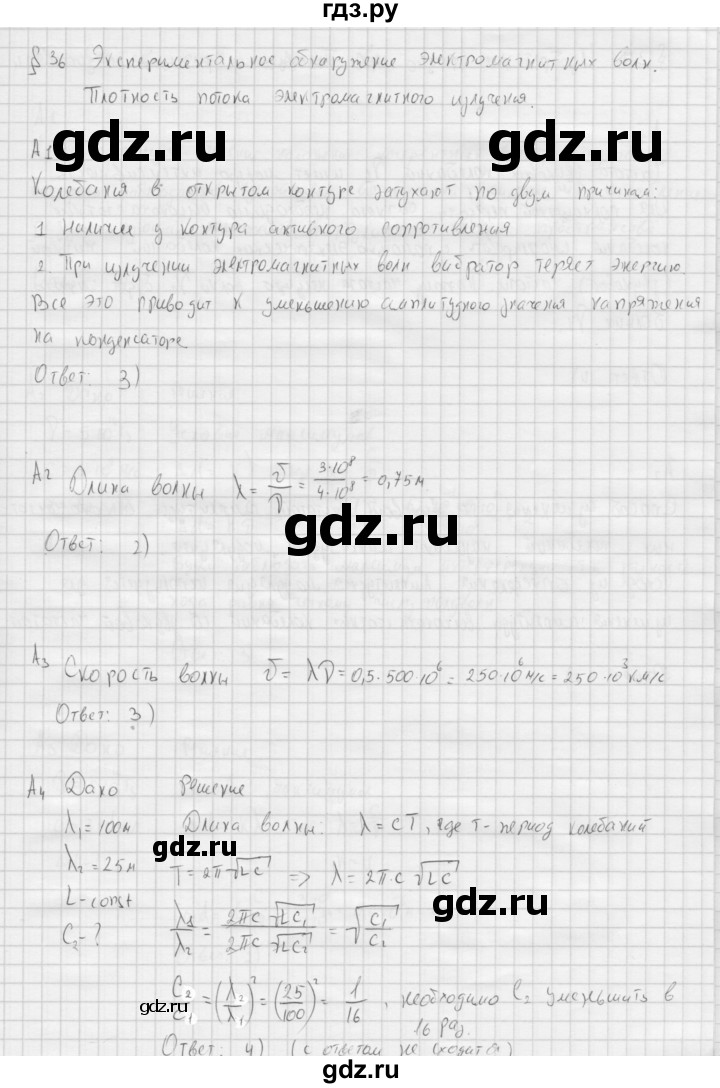 гдз.ру
§ 36 Экспериментальное обнаружение электромагнитных волн.
Плотность потока электромагнитного излучения.
gdz.ru
gdz.ru
A1
Колебания в открытом контуре затухают по двум причинам:
1 Наличие у контура активного сопротивления
2. При излучении электромагнитных волн вибратор теряет энергию.
Все это приводит к уменьшению амплитудного значения напряжения
на конденсаторе
Ответ: 3)
A2 Длина волны λ = v/ν = 3·10⁸/4·10⁸ = 0,75 м
gdz.ru
Ответ: 2)
A3 Скорость волны v = λν = 0,5·500·10⁶ = 250·10⁶ м/с = 250·10³ км/с
Ответ: 3)
A4 Дано Решение
λ₁ = 100м Длина волны: λ = cT, где T - период колебаний
gdz.ru
λ₂ = 25м T = 2π√LC => λ = 2πc√LC
L - const
gdz.ru
C₂ - ? λ₁/λ₂ = 2πc√LC₁/2πc√LC₂ = √C₁/C₂
C₂/C₁ = (λ₂/λ₁)² = (25/100)² = 1/16, необходимо C₂ уменьшить в
16 раз.
gdz.ru
Ответ: 4) (с ответом не сходится)
гдз.ру